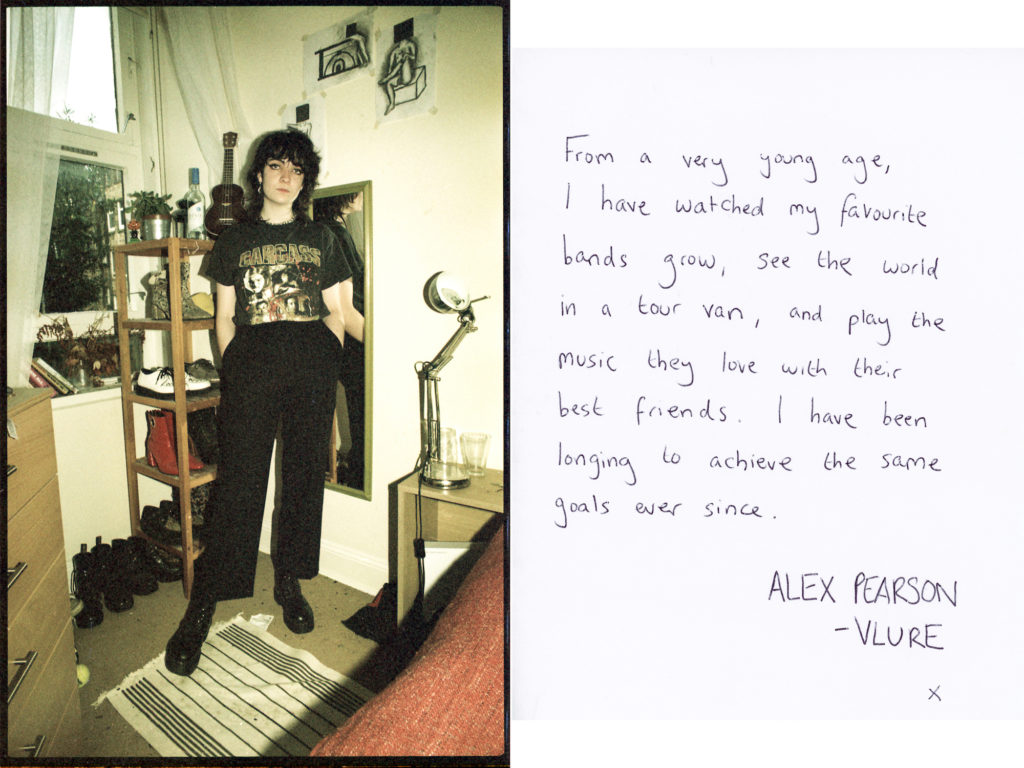 CARCASS
From a very young age,
I have watched my favourite
bands grow, see the world
in a tour van, and play the
music they love with their
best friends. I have been
longing to achieve the same
goals ever since.
ALEX PEARSON
- VLURE
x